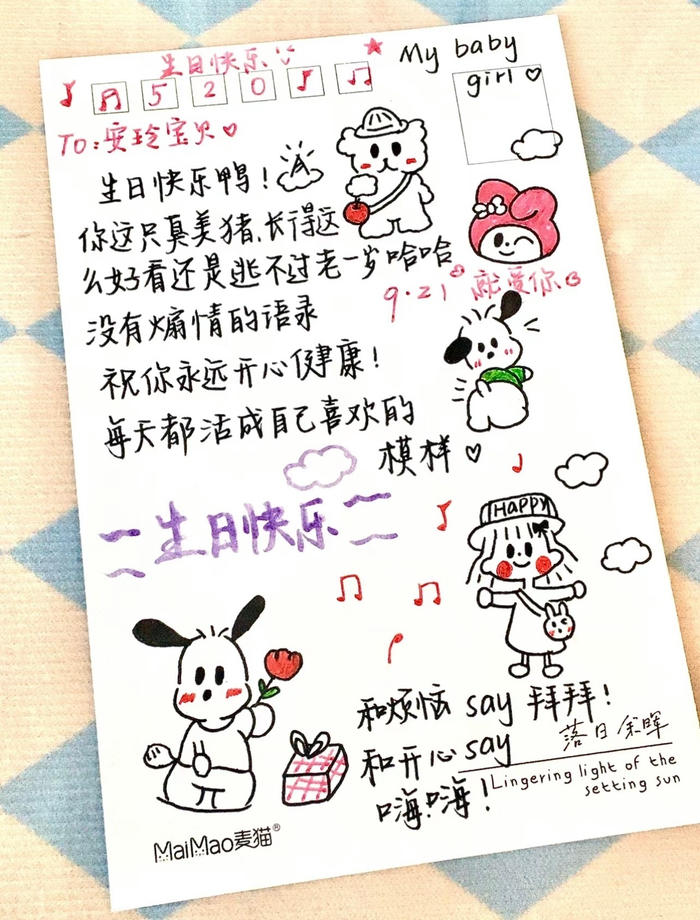 生日快乐
My baby
girl ♡
5 2 0
TO:安玲宝贝♡
生日快乐鸭!
你这只真美猪,长得这
么好看还是逃不过老一岁哈哈
9.21 就爱你
没有煽情的语录
祝你永远开心健康!
每天都活成自己喜欢的
模样♡
~生日快乐~
HAPPY
和烦恼 say 拜拜!
和开心 say
嗨嗨!
落日余晖
Lingering light of the
setting sun
MaiMao麦猫®